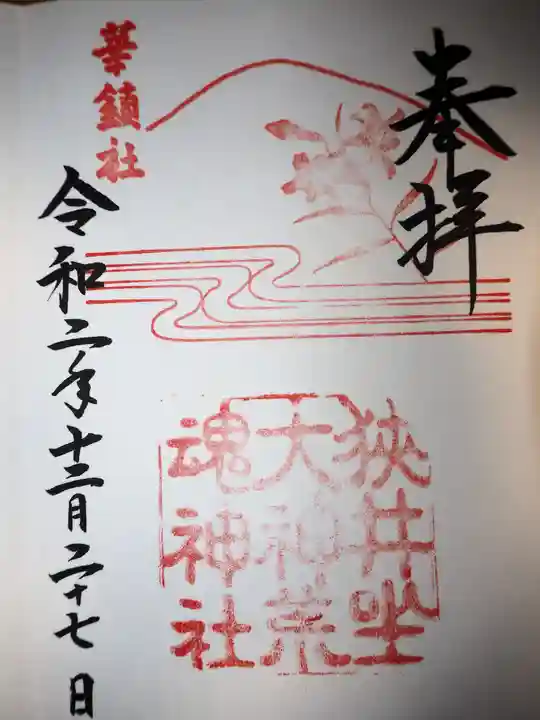 奉拝
狭井坐
大神荒
魂神社
華鎮社
令和二年十二月二十七日